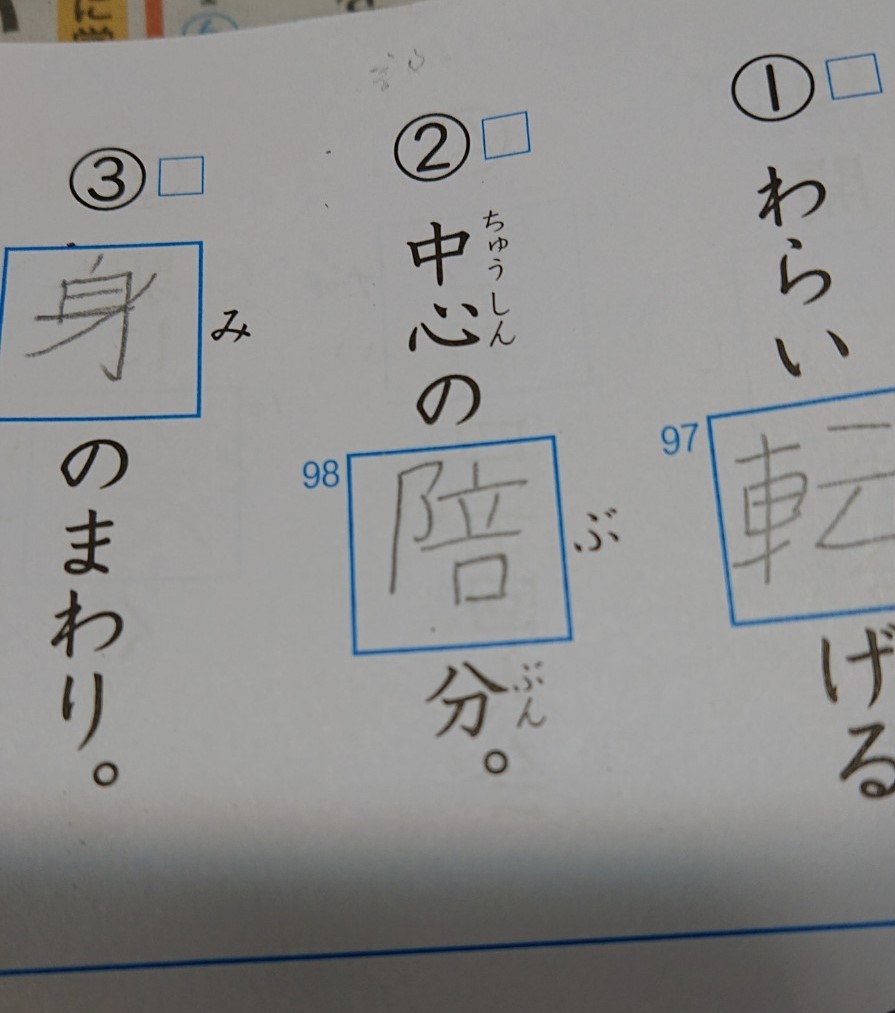 ① わらい転げる
97
ちゅうしん ぶ ぶん
② 中心の陪分。
98
み
③ 身のまわり。